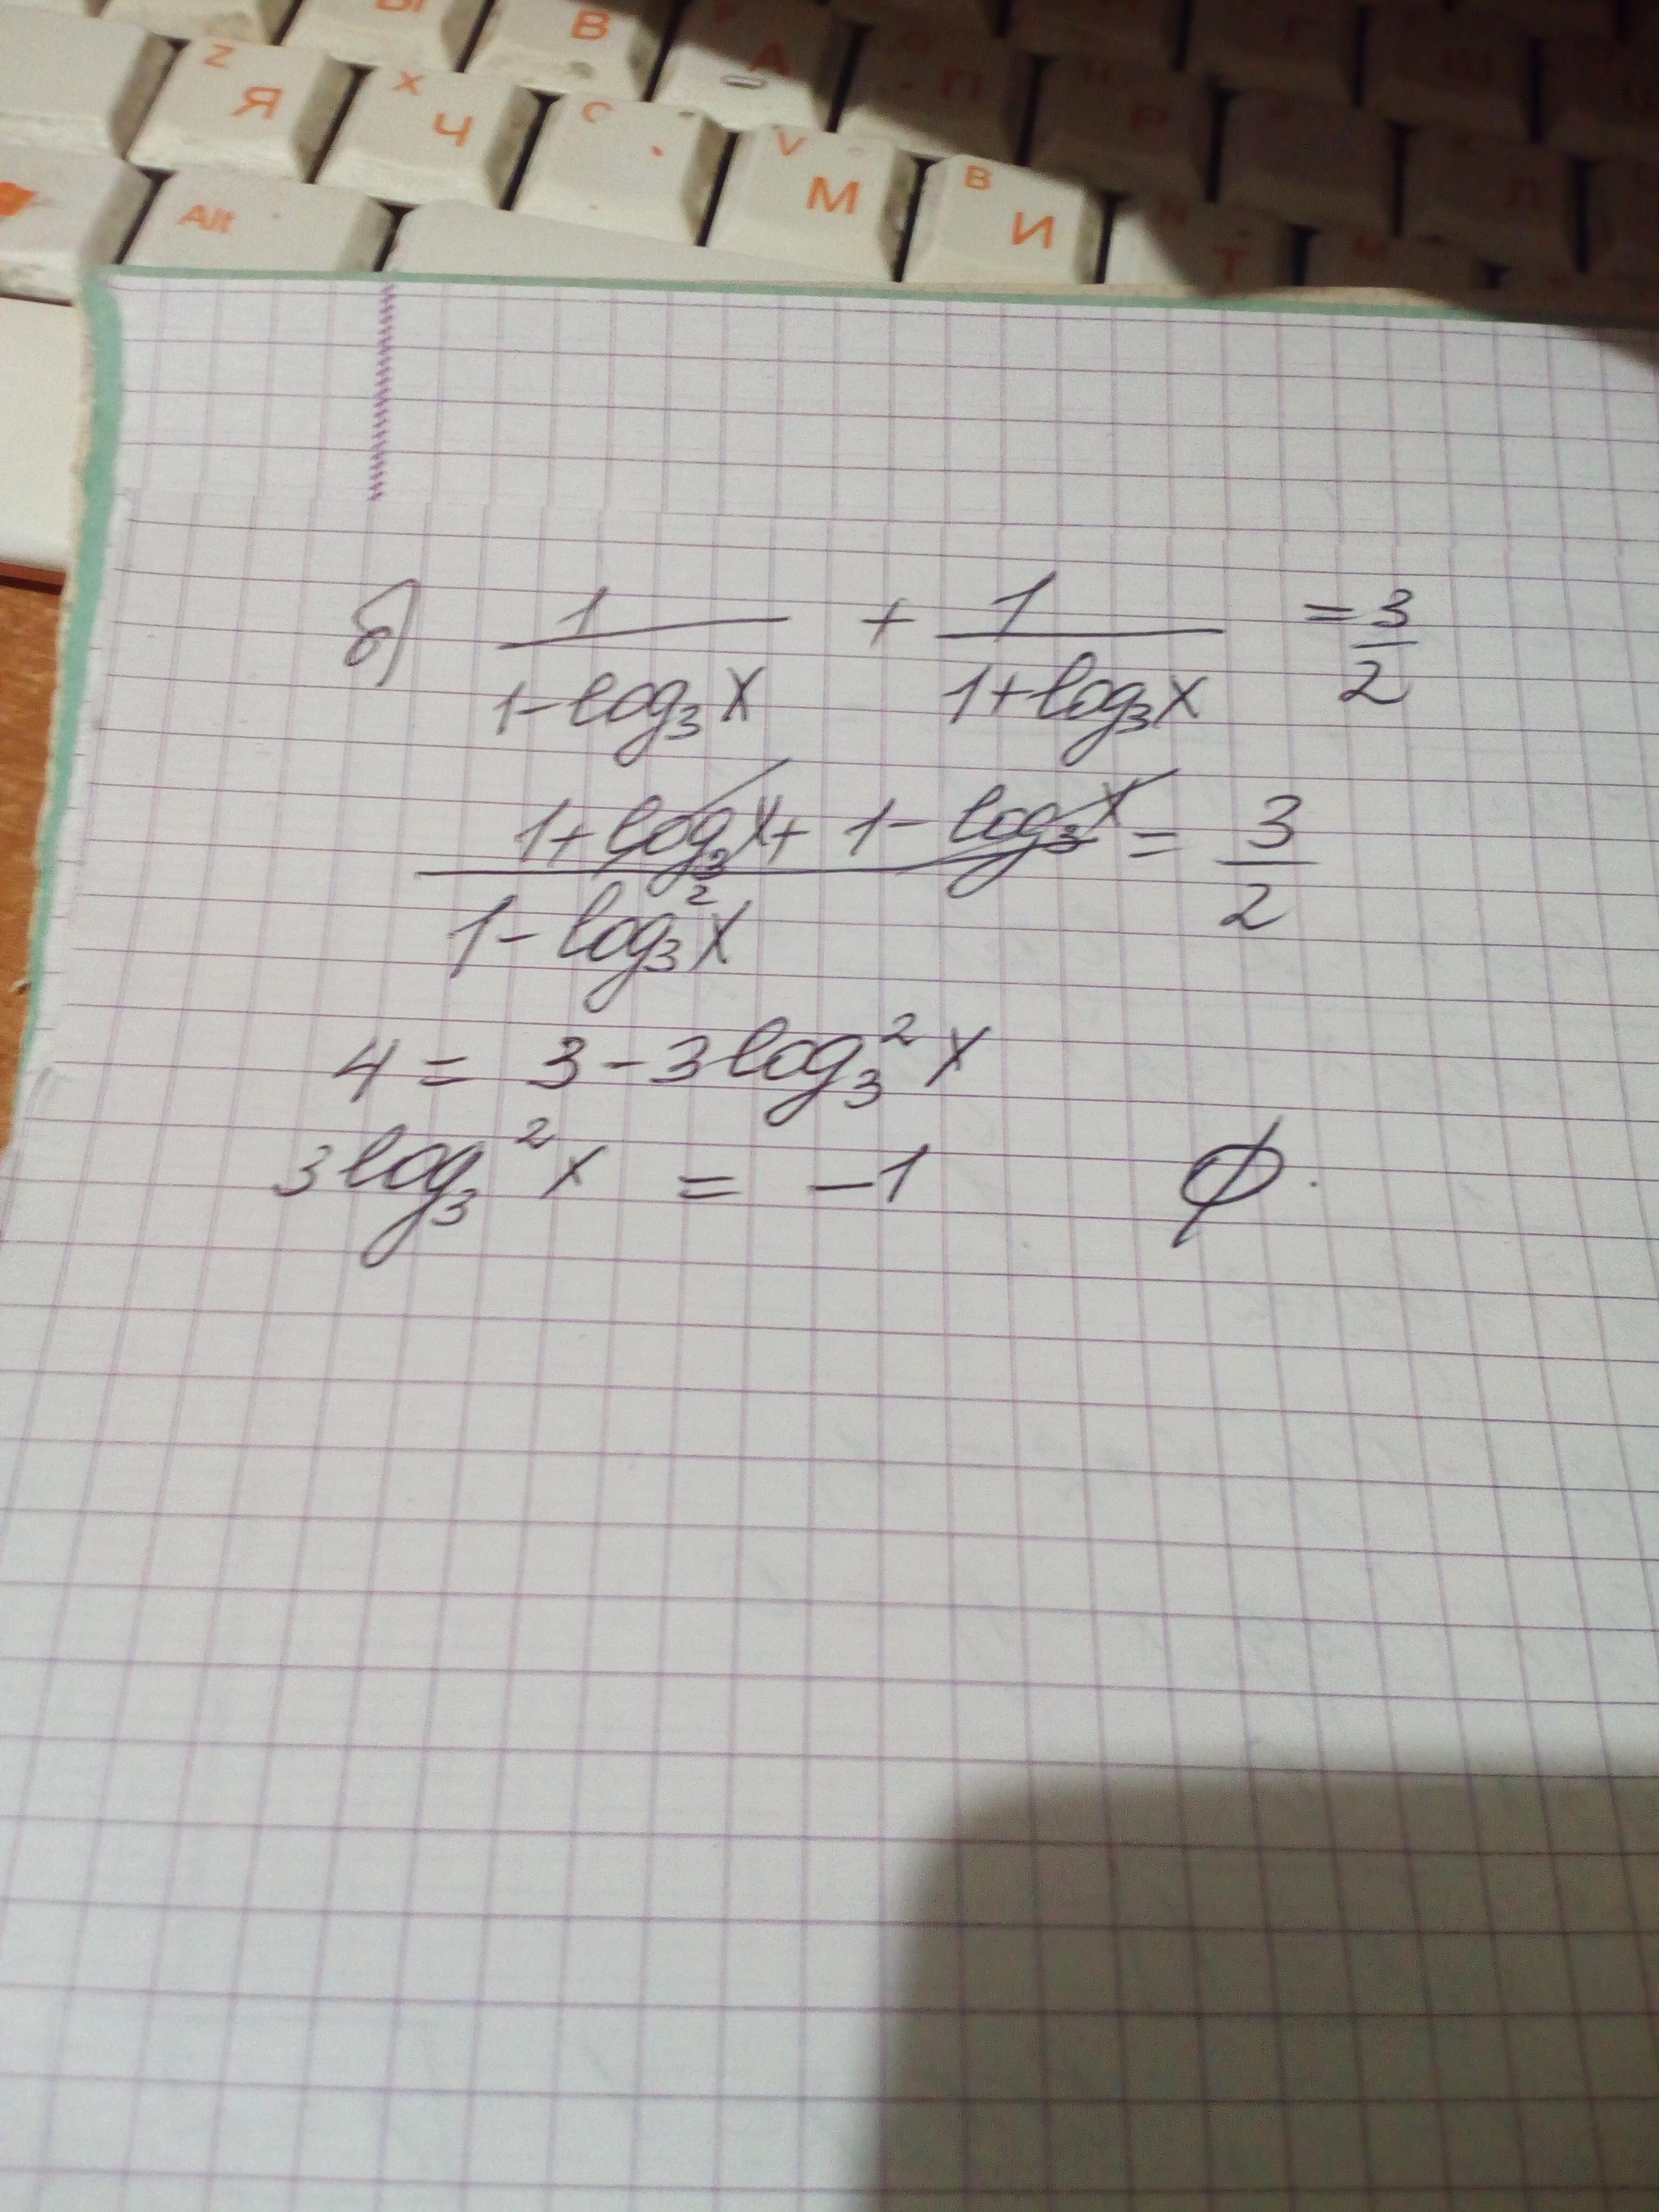 Ы В А П
Z Я X Ч C V М B И N Т М
Alt
б) 1/(1-log₃x) + 1/(1+log₃x) = 3/2
(1+log₃x+1-log₃x)/(1-log₃²x) = 3/2
4 = 3-3log₃²x
3log₃²x = -1 ∅.